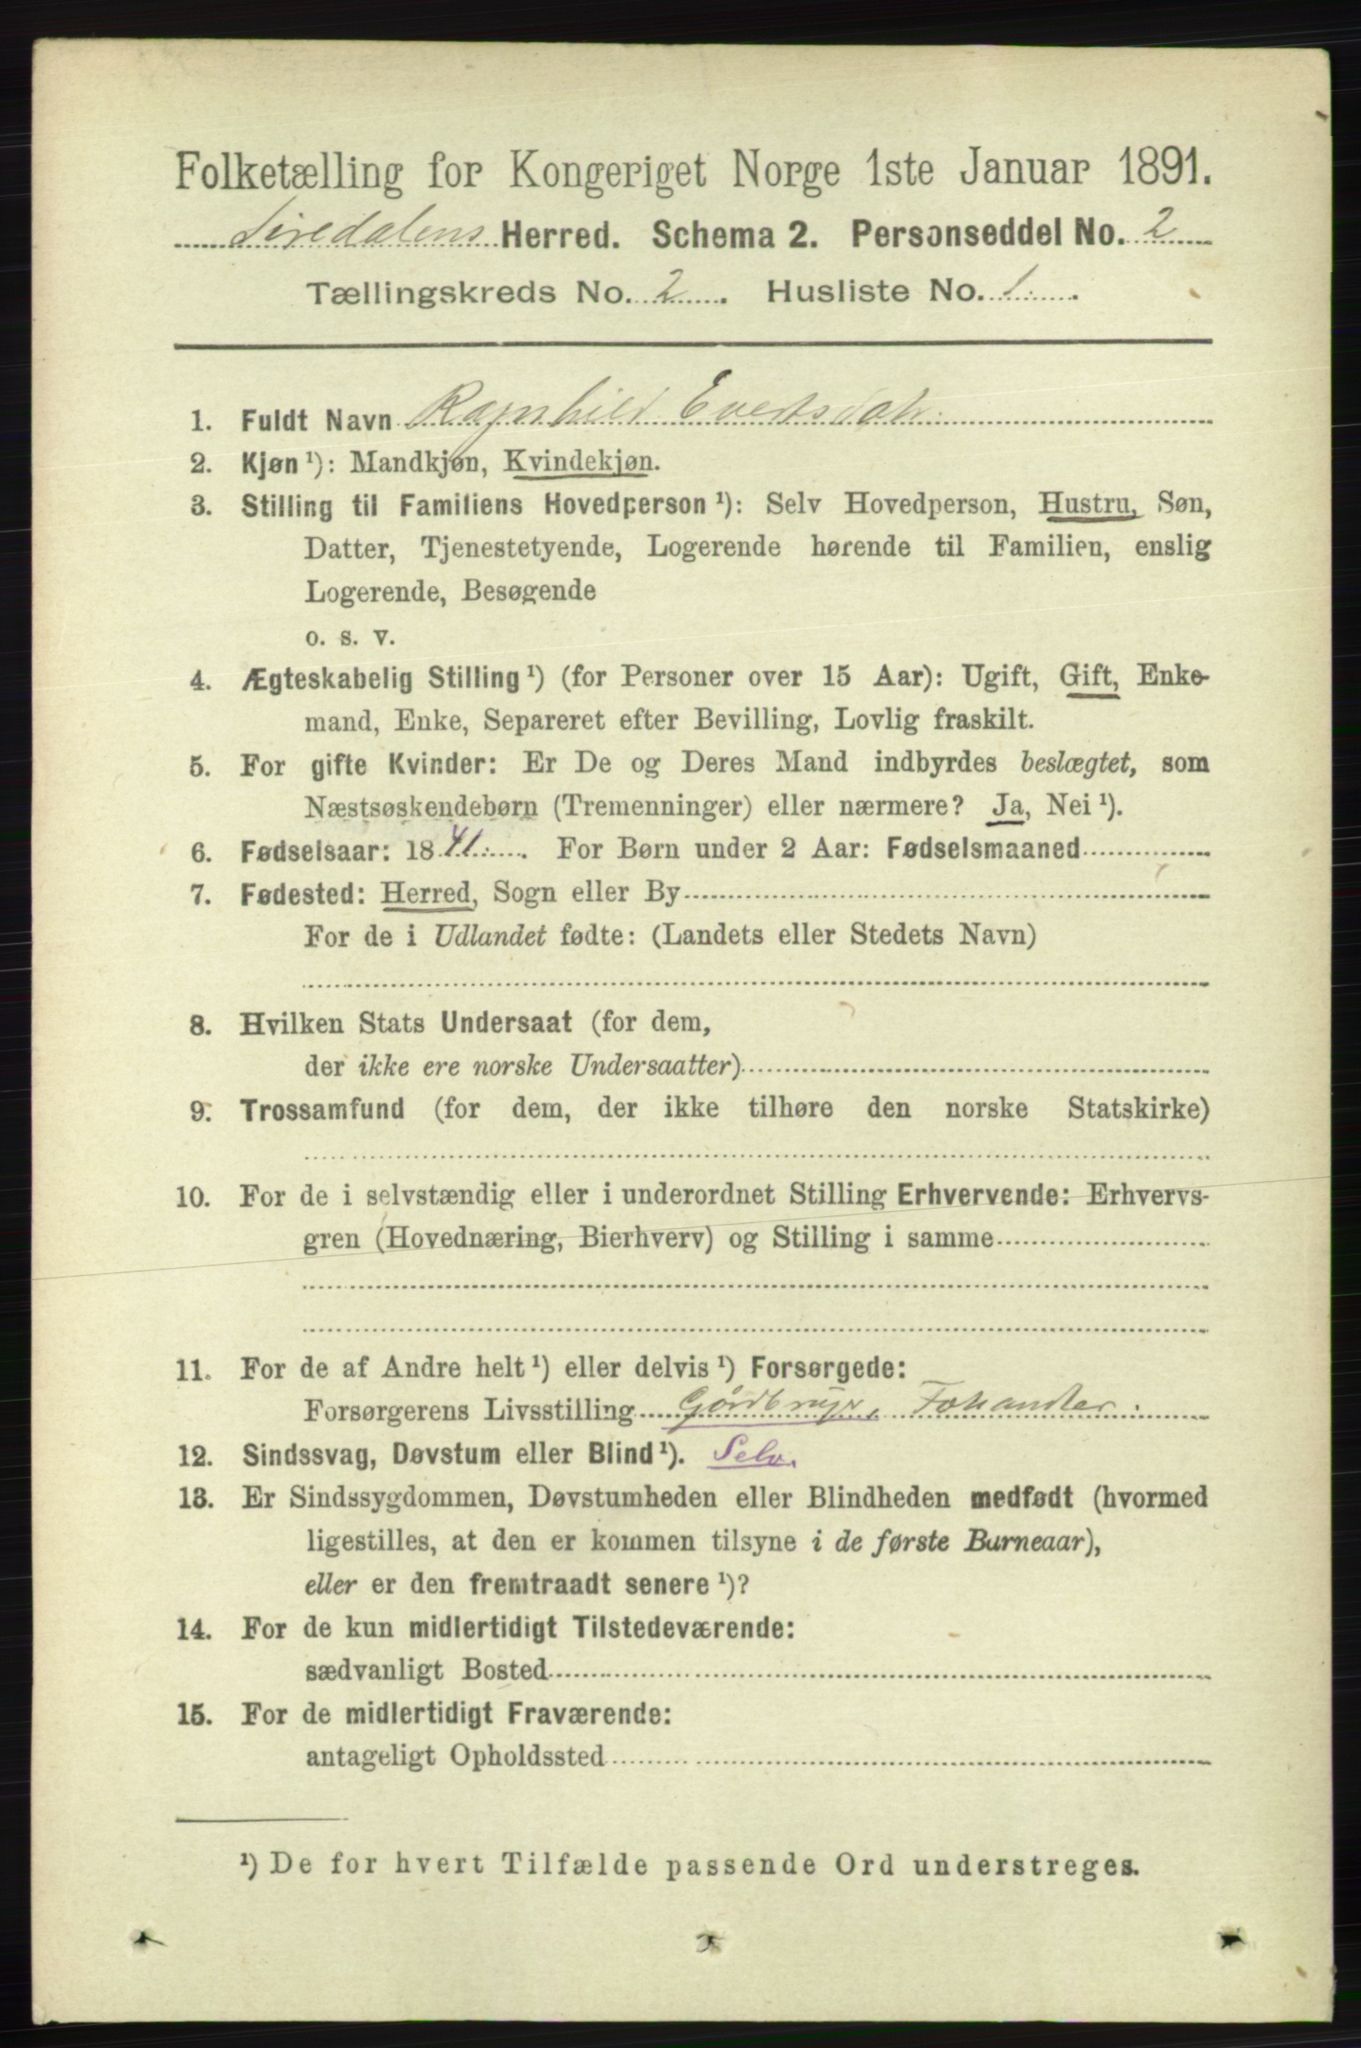 Folketælling for Kongeriget Norge 1ste Januar 1891.
Siredalens Herred. Schema 2. Personseddel No. 2
Tællingskreds No. 2. Husliste No. 1.
1. Fuldt Navn Ragnhild Evertsdatr.
2. Kjøn ¹): Mandkjøn, Kvindekjøn.
3. Stilling til Familiens Hovedperson ¹): Selv Hovedperson, Hustru, Søn,
Datter, Tjenestetyende, Logerende hørende til Familien, enslig
Logerende, Besøgende
o. s. v.
4. Ægteskabelig Stilling ¹) (for Personer over 15 Aar): Ugift, Gift, Enke-
mand, Enke, Separeret efter Bevilling, Lovlig fraskilt.
5. For gifte Kvinder: Er De og Deres Mand indbyrdes beslægtet, som
Næstsøskendebørn (Tremenninger) eller nærmere? Ja, Nei ¹).
6. Fødselsaar: 1841. For Børn under 2 Aar: Fødselsmaaned
7. Fødested: Herred, Sogn eller By
For de i Udlandet fødte: (Landets eller Stedets Navn)
8. Hvilken Stats Undersaat (for dem,
der ikke ere norske Undersaatter)
9. Trossamfund (for dem, der ikke tilhøre den norske Statskirke)
10. For de i selvstændig eller i underordnet Stilling Erhvervende: Erhvervs-
gren (Hovednæring, Bierhverv) og Stilling i samme
11. For de af Andre helt ¹) eller delvis ¹) Forsørgede:
Forsørgerens Livsstilling Gårdbruger, Fæhandler.
12. Sindssvag, Døvstum eller Blind ¹). Selv.
13. Er Sindssygdommen, Døvstumheden eller Blindheden medfødt (hvormed
ligestilles, at den er kommen tilsyne i de første Barneaar),
eller er den fremtraadt senere ¹)?
14. For de kun midlertidigt Tilstedeværende:
sædvanligt Bosted
15. For de midlertidigt Fraværende:
antageligt Opholdssted
¹) De for hvert Tilfælde passende Ord understreges.